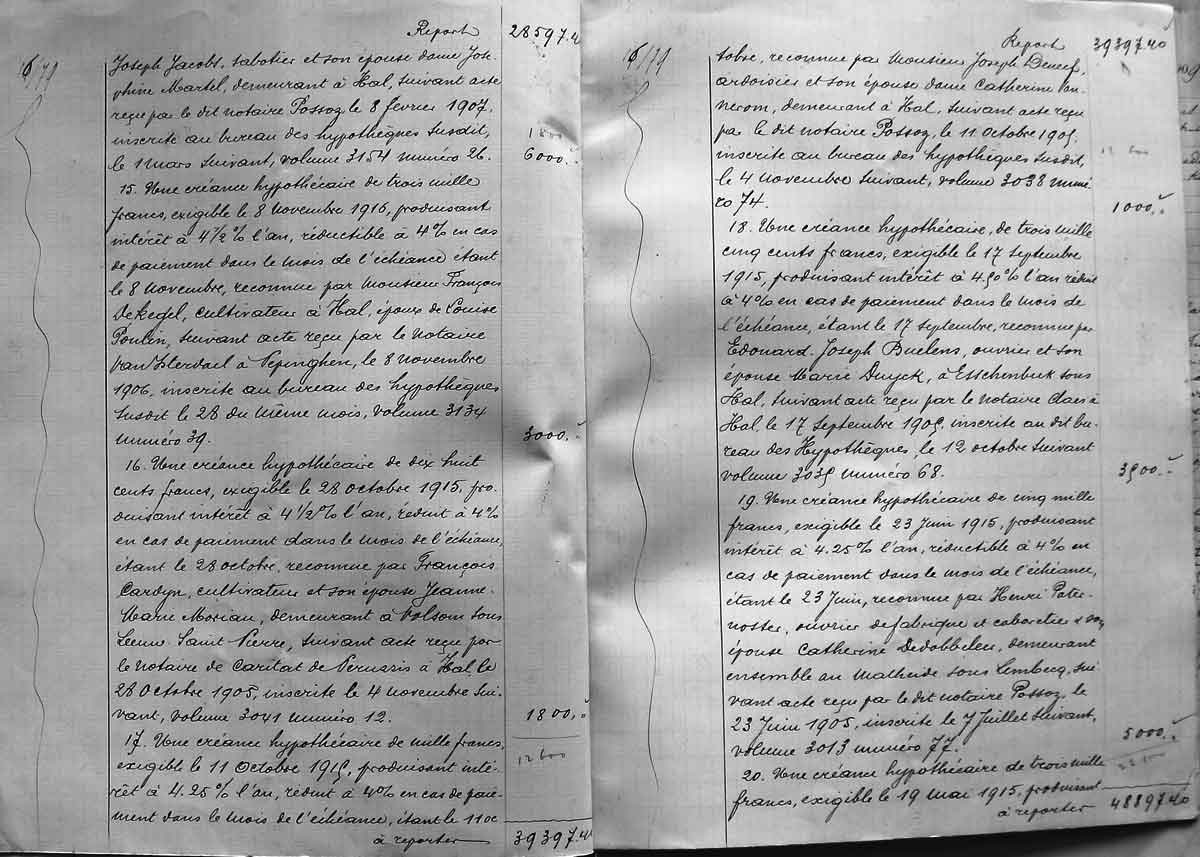 Report 28597.40
6/79
Joseph Jacobs, sabotier et son épouse dame José-
phine Martel, demeurant à Hal, suivant acte
reçu par le dit notaire Possoz, le 8 février 1907,
inscrite au bureau des hypothèques susdit,
le 1 mars suivant, volume 3154 numéro 26. 6000.-
15. Une créance hypothécaire de trois mille
francs, exigible le 8 novembre 1916, produisant
intérêt à 4 1/2 % l'an, réductible à 4% en cas
de paiement dans le mois de l'échéance étant
le 8 Novembre, reconnue par Monsieur François
Dekegel, cultivateur à Hal, époux de Louise
Poulin, suivant acte reçu par le Notaire
à Pepinghen, le 8 novembre
1906, inscrite au bureau des hypothèques
susdit le 28 du même mois, volume 3134
numéro 39. 3000.-
16. Une créance hypothécaire de dix huit
cents francs, exigible le 28 octobre 1915, pro-
duisant intérêt à 4 1/2 % l'an, réduit à 4%
en cas de paiement dans le mois de l'échéance,
étant le 28 octobre, reconnue par François
Cardyn, cultivateur et son épouse Jeanne-
Marie Morian, demeurant à Volsom sous
Leeuw Saint Pierre, suivant acte reçu par
le Notaire de Caritat de Peruzzis à Hal, le
28 Octobre 1905, inscrite le 4 novembre sui-
vant, volume 3041 numéro 12. 1800.-
12 600
17. Une créance hypothécaire de mille francs,
exigible le 11 Octobre 1915, produisant inté-
rêt à 4.25% l'an, réduit à 4% en cas de paie-
ment dans le mois de l'échéance, étant le 11 oc
à reporter 39397.40
Report 39397.40
6/79
tobre, reconnue par Monsieur Joseph Deneef,
ardoisier et son épouse dame Catherine Van-
necom, demeurant à Hal, suivant acte reçu
par le dit notaire Possoz, le 11 Octobre 1905,
inscrite au bureau des hypothèques susdit,
le 4 Novembre suivant, volume 3038 numé
ro 74. 1000.-
18. Une créance hypothécaire, de trois mille
cinq cents francs, exigible le 17 septembre
1915, produisant intérêt à 4.50% l'an réduit
à 4% en cas de paiement dans le mois de
l'échéance, étant le 17 septembre, reconnue par
Edouard Joseph Buelens, ouvrier et son
épouse Marie Duyck, à Esschenbeek sous
Hal, suivant acte reçu par le notaire à
Hal, le 17 Septembre 1905, inscrite au dit bu-
reau des Hypothèques, le 12 octobre suivant
volume 3035 numéro 68. 3500.-
19. Une créance hypothécaire de cinq mille
francs, exigible le 23 Juin 1915, produisant
intérêt à 4.25% l'an, réductible à 4% en
cas de paiement dans le mois de l'échéance,
étant le 23 Juin, reconnue par Henri Pater-
noster, ouvrier de fabrique et cabaretier & son
épouse Catherine Dedobbeleer, demeurant
ensemble au Malheide sous Lembecq, sui-
vant acte reçu par le dit notaire Possoz, le
23 Juin 1905, inscrite le 7 Juillet suivant,
volume 3013 numéro 77. 5000.-
20. Une créance hypothécaire de trois mille
francs, exigible le 19 Mai 1915, produisant
à reporter 48897.40